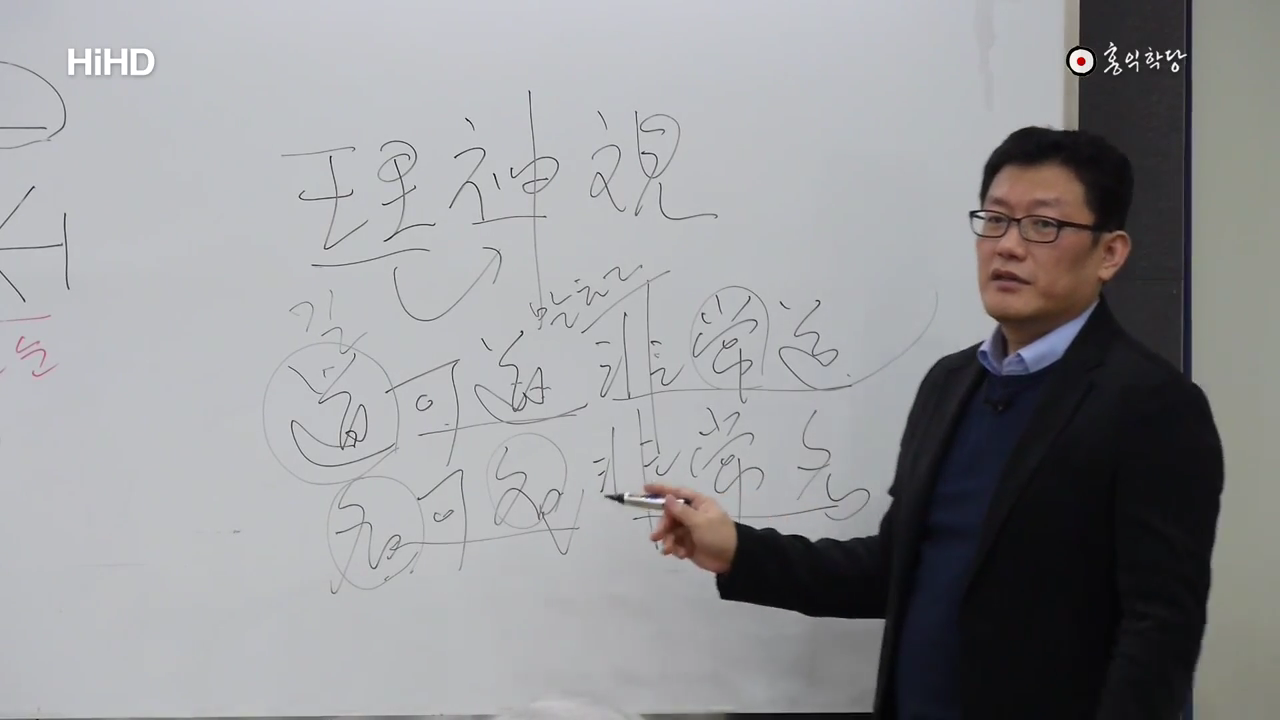 HiHD
홍익학당
理神視
길
道可道 非常道
名可名 非常名